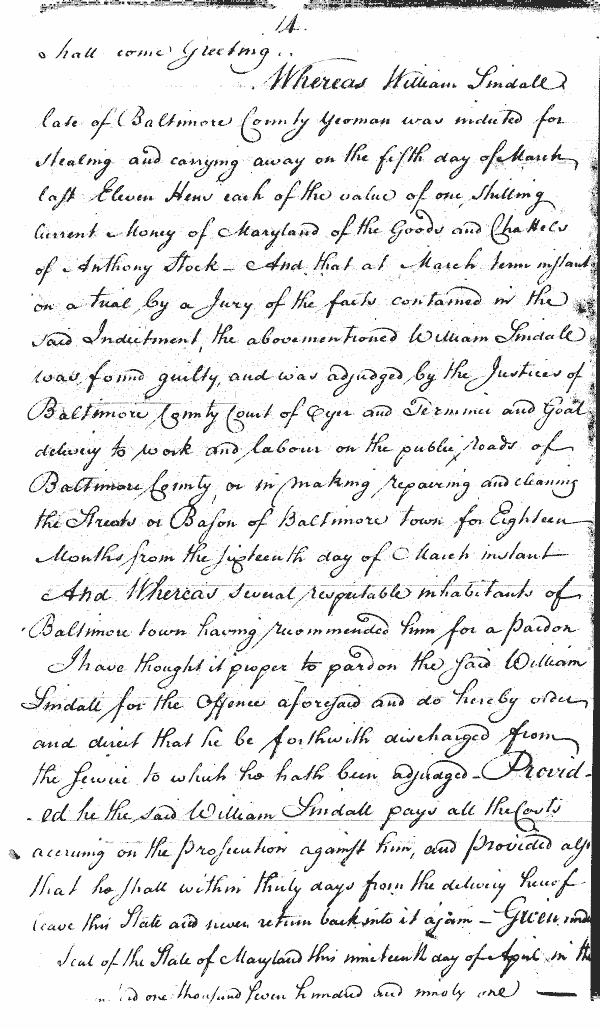 14.
shall come Greeting..
Whereas William Sindall
late of Baltimore County Yeoman was indicted for
stealing and carrying away on the fifth day of March
last Eleven Hens each of the value of one shilling
Current Money of Maryland of the Goods and Chattels
of Anthony Stock - And that at March term instant
on a trial by a Jury of the facts contained in the
said Indictment, the abovementioned William Sindall
was found guilty, and was adjudged by the Justices of
Baltimore County Court of Oyer and Terminer and Goal
delivery to work and labour on the public roads of
Baltimore County, or in making repairing and cleaning
the Streets or Bason of Baltimore town for Eighteen
Months from the sixteenth day of March instant
And Whereas several respectable inhabitants of
Baltimore town having recommended him for a pardon
I have thought it proper to pardon the said William
Sindall for the Offence aforesaid and do hereby order
and direct that he be forthwith discharged from
the service to which he hath been adjudged - Provid-
-ed he the said William Sindall pays all the Costs
accruing on the prosecution against him, and provided also
that he shall within thirty days from the delivery hereof
leave this State and never return back into it again - Given under
seal of the State of Maryland this nineteenth day of April in the
one thousand seven hundred and ninety one